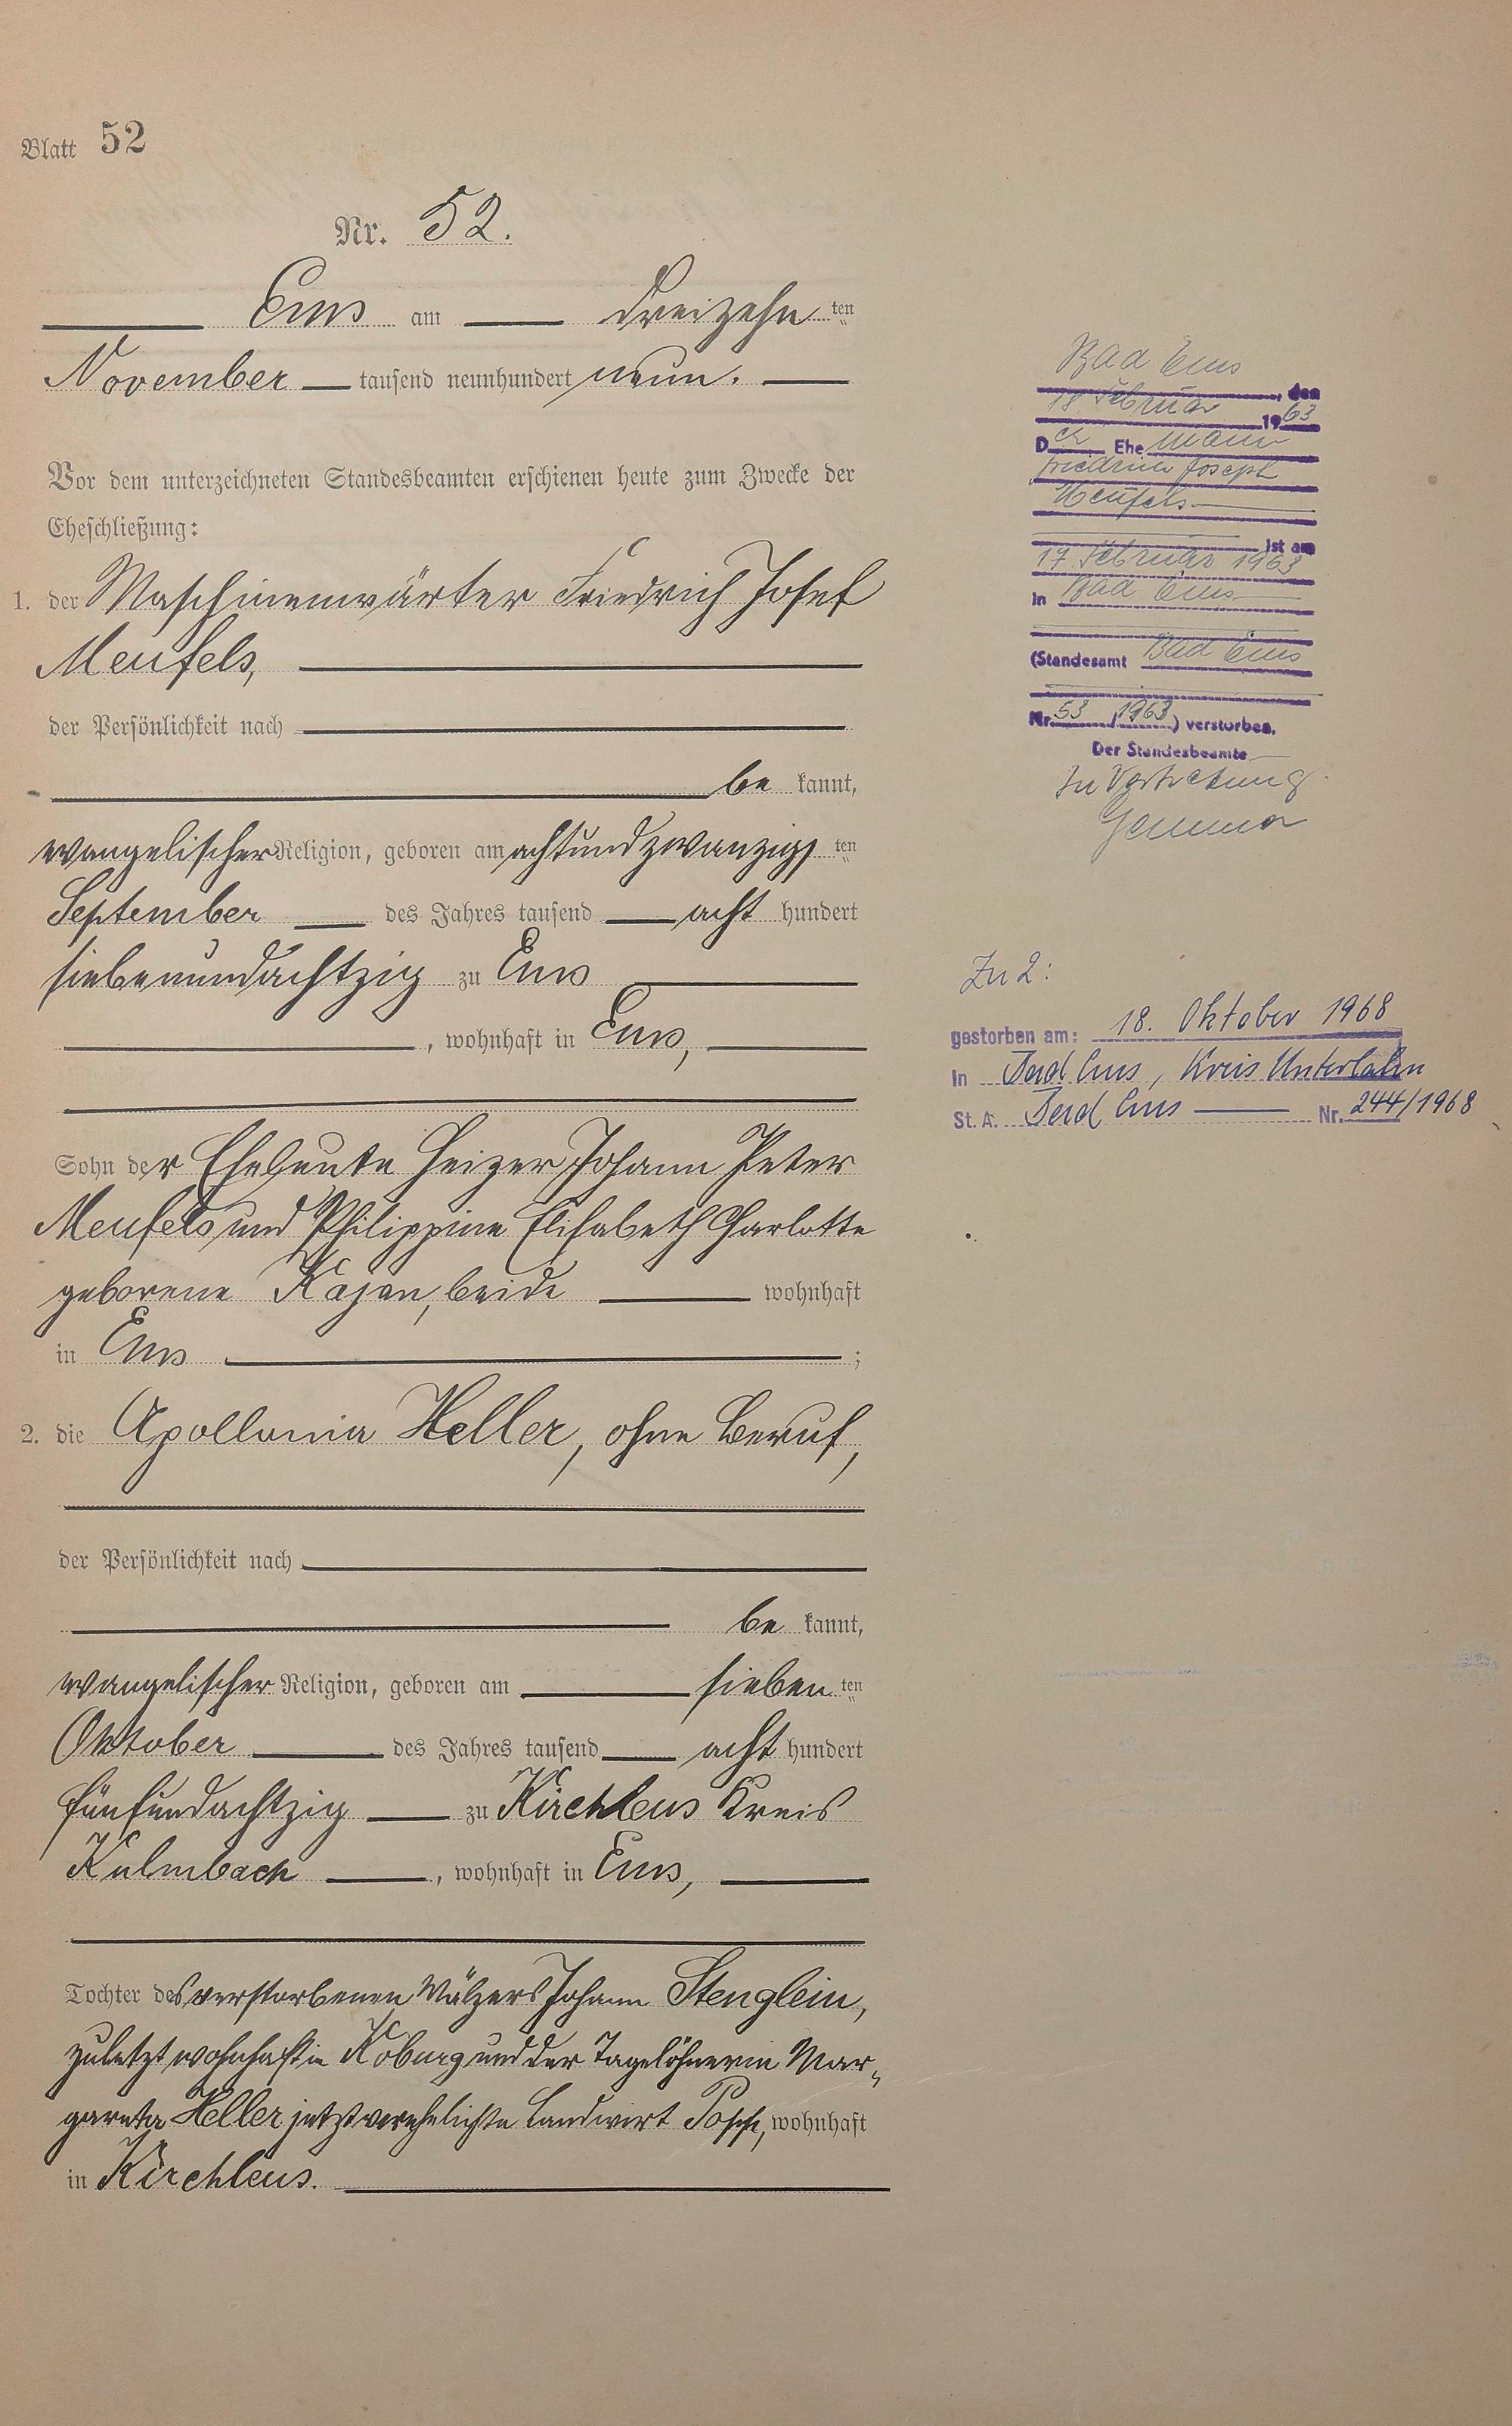 Blatt 52
Nr. 52.
Ems am dreizehn ten
November tausend neunhundert neun.
Vor dem unterzeichneten Standesbeamten erschienen heute zum Zwecke der
Eheschließung:
1. der Maschinenwärter Friedrich Josef
Meufels,
der Persönlichkeit nach
be kannt,
evangelischer Religion, geboren am achtundzwanzigs ten
September des Jahres tausend acht hundert
siebenundachtzig zu Ems
, wohnhaft in Ems,
Sohn der Eheleute Heizer Johann Peter
Meufels und Philippine Elisabeth Charlotte
geborene Kajan, beide wohnhaft
in Ems ;
2. die Apollonia Heller, ohne Beruf,
der Persönlichkeit nach
be kannt,
evangelischer Religion, geboren am sieben ten
Oktober des Jahres tausend acht hundert
fünfundachtzig zu Kirchleus Kreis
Kulmbach , wohnhaft in Ems,
Tochter des verstorbenen Mälzers Johann Stenglein,
zuletzt wohnhaft in Koburg und der Tagelöhnerin Mar„
gareta Heller jetzt verehelichte Landwirt Popp, wohnhaft
in Kirchleus.
Bad Ems , den
18. Februar 1963
Der Ehe mann
Friedrich Joseph
Meufels
ist am
17. Februar 1963
in Bad Ems
(Standesamt Bad Ems
Nr. 53 / 1963) verstorben.
Der Standesbeamte
In Vertretung
Zu 2:
gestorben am: 18. Oktober 1968
in Bad Ems, Kreis Unterlahn
St. A. Bad Ems Nr. 244/1968